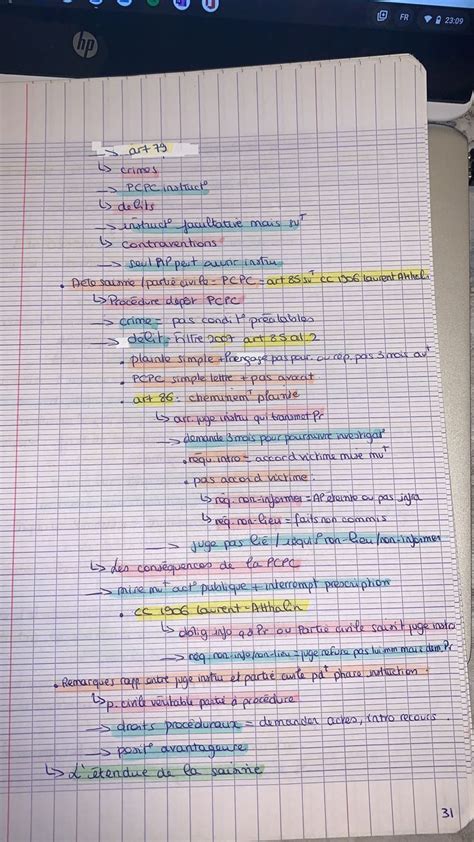 FR 23:09
hp
→ art 79
↳ crimes
→ PCPC instruct°
↳ délits
→ instruct° facultative mais
↳ contraventions
→ seul PR peut ouvrir instru
• De la saisine / partie civile = PCPC = art 85 CC 1906 Laurent Atthalin
↳ Procédure dépôt PCPC
→ crime = pas condit° préalables
→ délit = filtre 2007 art 85 al 2
• plainte simple + Pr engage pas pour. ou rép. pas 3 mois avt
• PCPC simple lettre + pas avocat
• art 86 : cheminemt plainte
↳ juge instru qui transmet Pr
→ demande 3 mois pour poursuivre investigat°
• réqu. intro = accord victime mise mvt
• pas accord victime :
↳ réq. non-informer = AP éteinte ou pas infra
↳ réq. non-lieu = faits non commis
→ juge pas lié / réquis° non-lieu / non-informer
↳ Les conséquences de la PCPC
→ mise mvt act° publique + interrompt prescription
• CC 1906 Laurent-Atthalin
↳ oblig info qd Pr ou Partie civile saisit juge instru
→ réq. non-info/non-lieu = juge refuse pas lui mm mais dem. Pr
• Remarques rapp. entre juge instru et partie civile pdt phase instruction :
↳ p. civile véritable partie à procédure
→ droits procéduraux = demander actes, intro recours.
→ posit° avantageuse
↳ L'étendue de la saisine
31